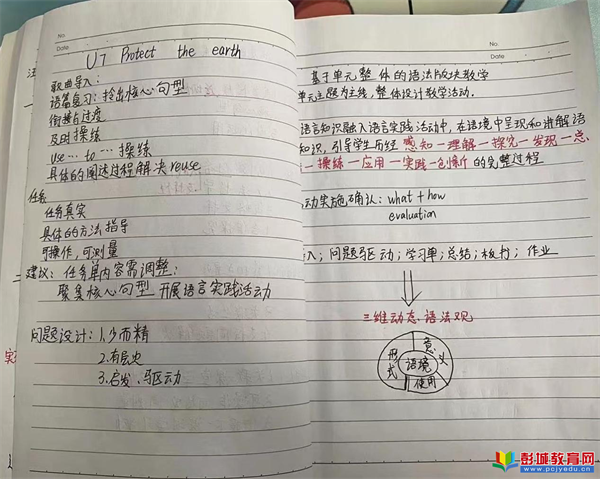 No.
Date
U7 Protect the earth
歌曲导入:
语篇复习:拎出核心句型
衔接与过度
及时操练
use…to…操练
具体的阐述过程解决reuse
任务
任务真实
具体的方法指导
可操作,可测量
建议:任务单内容需调整:
聚集核心句型 开展语言实践活动
问题设计:1.少而精
2.有层次
3.启发、驱动
No.
Date
基于单元整体的语法版块教学
单元主题为主线,整体设计教学活动.
语言知识融入语言实践活动中,在语境中呈现和讲解语
知识,引导学生历经 感知一理解一探究一发现一总
一操练一应用一实践一创新的完整过程
动实施确认:what + how
evaluation
入;问题驱动;学习单;总结;板书;作业
三维动态语法观
形式
意义
语境
使用
彭城教育网
www.pcjyedu.cn